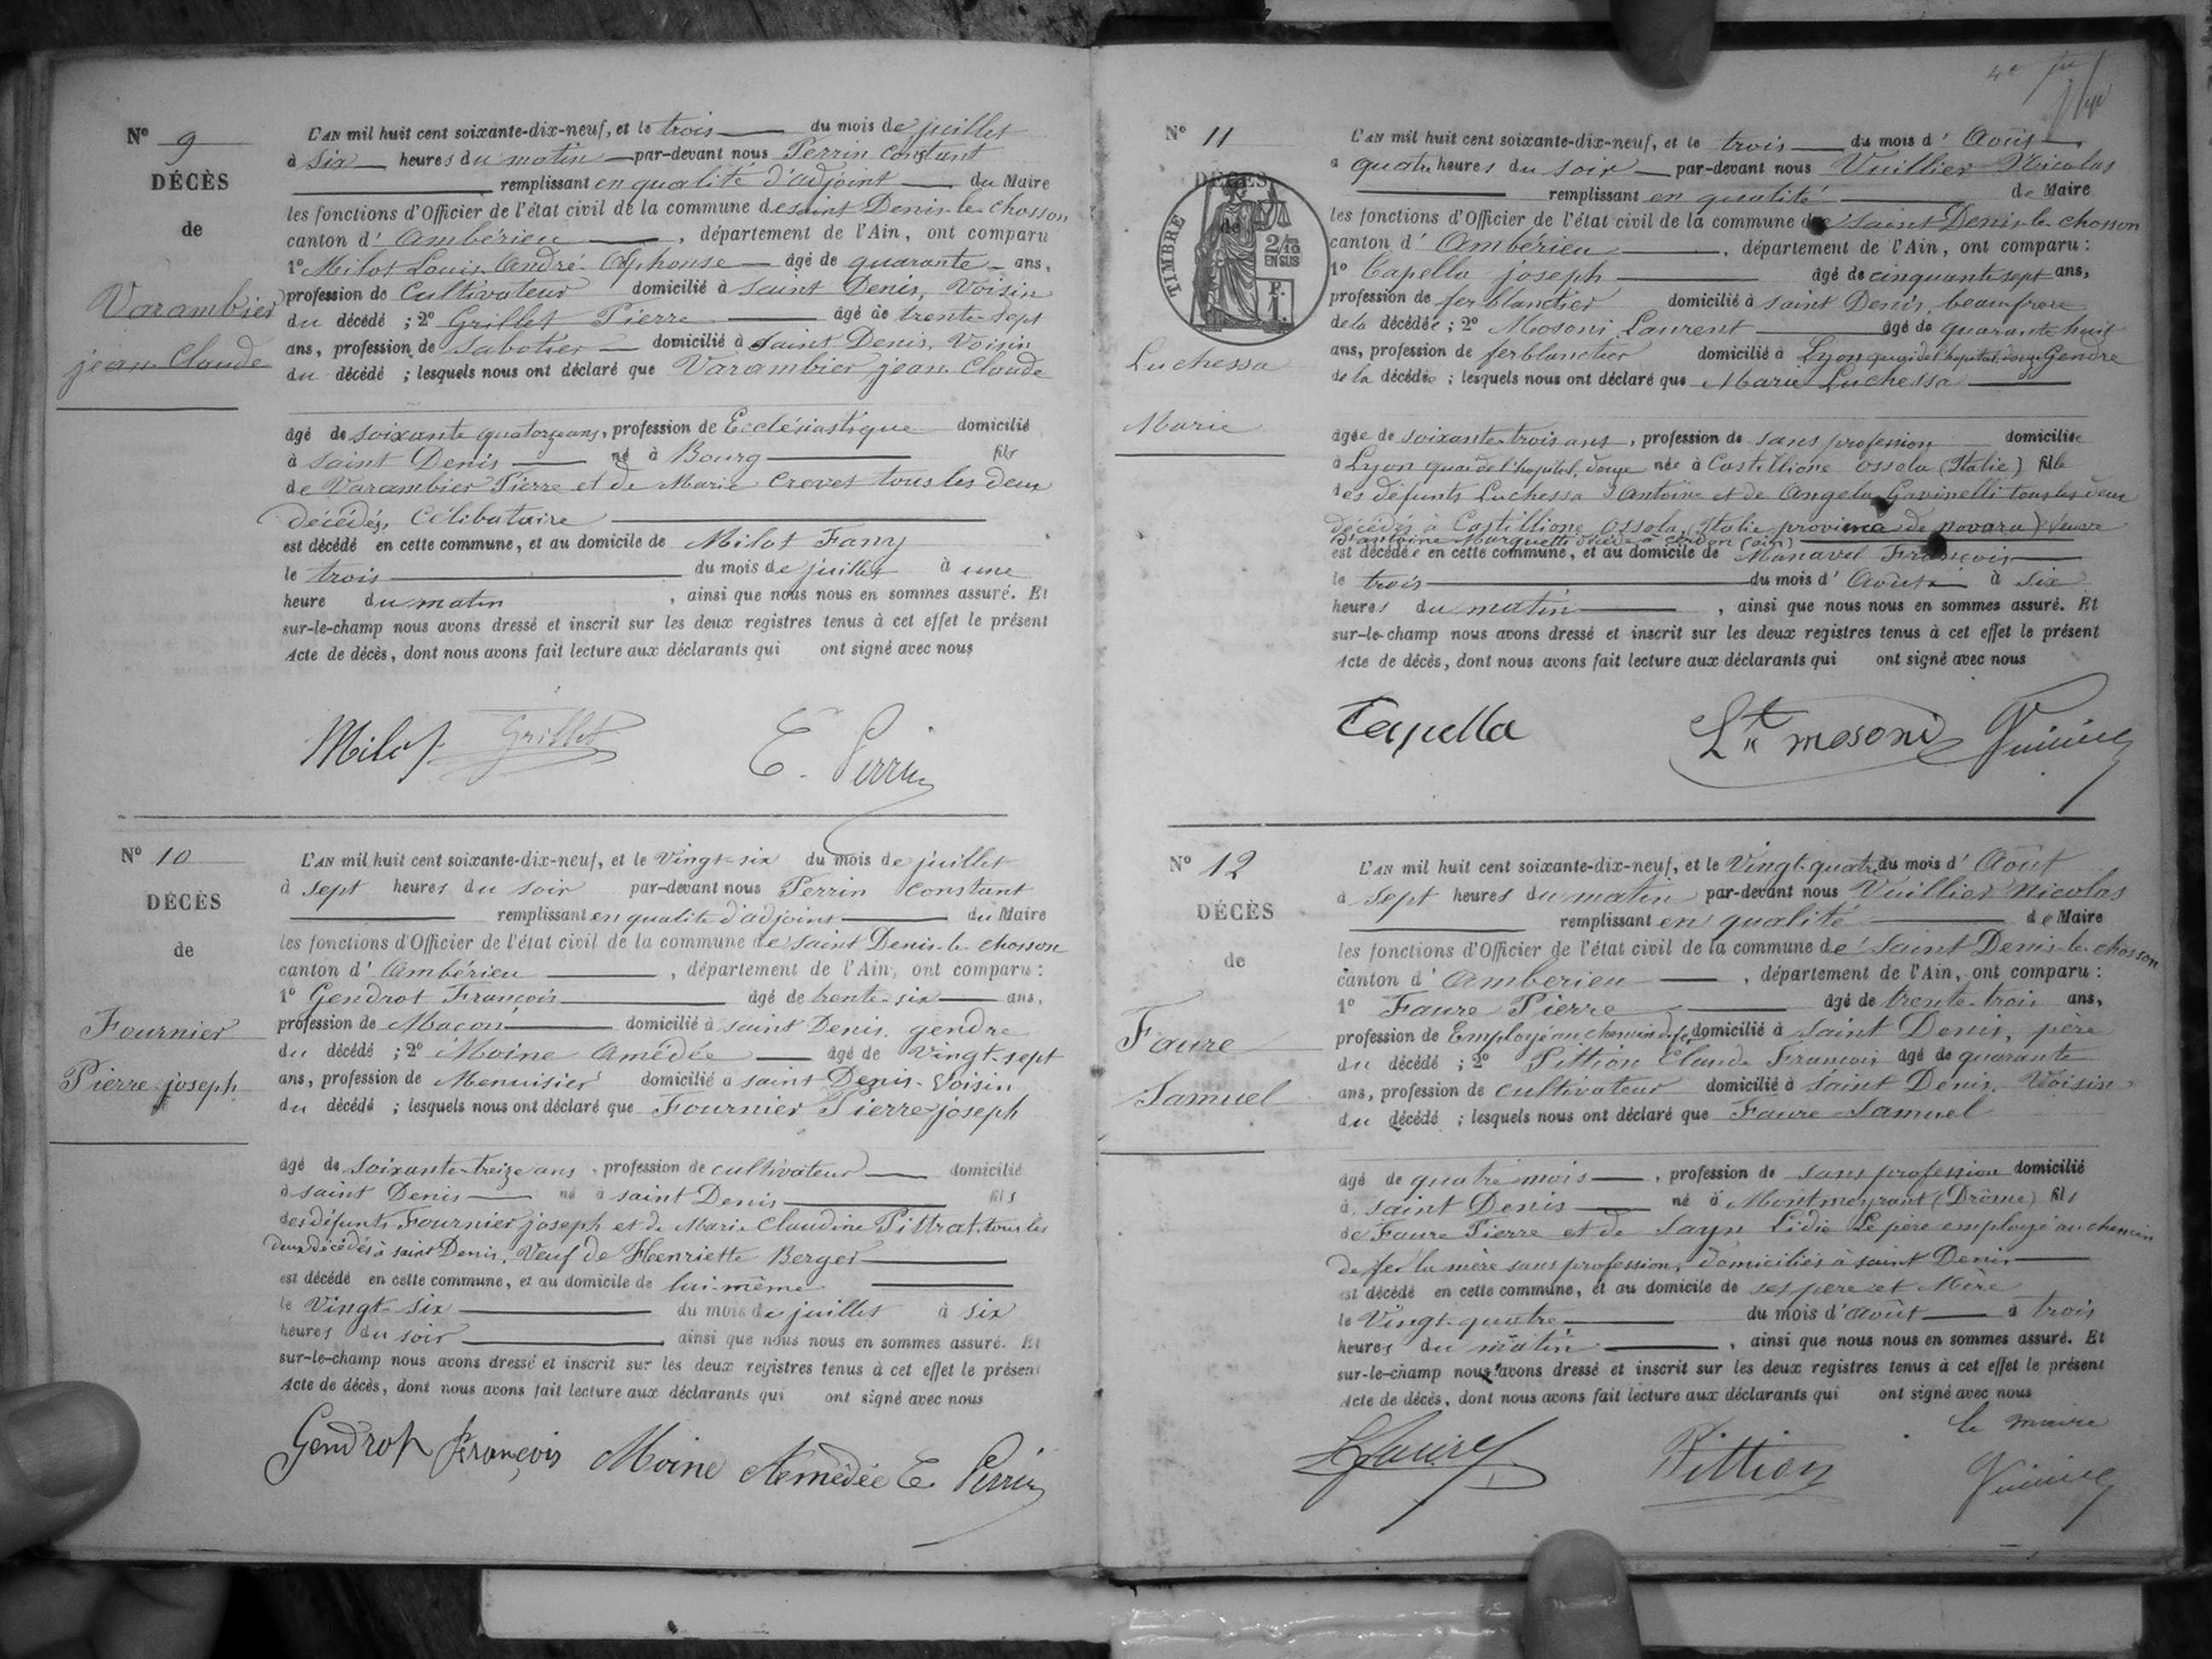 N° 9
DÉCÈS
de
Varambier
jean Claude
L'AN mil huit cent soixante-dix-neuf, et le trois du mois de juillet
à six heures du matin par-devant nous Perrin Constant
remplissant en qualité d'adjoint du Maire
les fonctions d'Officier de l'état civil de la commune de saint Denis-le-chosson
canton d'Ambérieu, département de l'Ain, ont comparu
1° Milot Louis André Alphonse âgé de quarante ans,
profession de Cultivateur domicilié à saint Denis, Voisin
du décédé ; 2° Grillet Pierre âgé de trente-sept
ans, profession de Sabotier domicilié à saint Denis, Voisin
du décédé ; lesquels nous ont déclaré que Varambier jean Claude
âgé de soixante quatorze ans, profession de Ecclésiastique domicilié
à saint Denis né à Bourg fils
de Varambier Pierre et de Marie Crevet tous les deux
décédés, Célibataire
est décédé en cette commune, et au domicile de Milot Fany
le trois du mois de juillet à une
heure du matin, ainsi que nous nous en sommes assuré. Et
sur-le-champ nous avons dressé et inscrit sur les deux registres tenus à cet effet le présent
Acte de décès, dont nous avons fait lecture aux déclarants qui ont signé avec nous
Milot Grillet E. Perrin
N° 10
DÉCÈS
de
Fournier
Pierre joseph
L'AN mil huit cent soixante-dix-neuf, et le Vingt-six du mois de juillet
à sept heures du soir par-devant nous Perrin Constant
remplissant en qualité d'adjoint du Maire
les fonctions d'Officier de l'état civil de la commune de saint Denis-le-chosson
canton d'Ambérieu, département de l'Ain, ont comparu :
1° Gendrot François âgé de trente-six ans,
profession de Maçon domicilié à saint Denis, gendre
du décédé ; 2° Moine Amédée âgé de Vingt-sept
ans, profession de Menuisier domicilié à saint Denis. Voisin
du décédé ; lesquels nous ont déclaré que Fournier Pierre joseph
âgé de soixante-treize ans, profession de cultivateur domicilié
à saint Denis né à saint Denis fils
des défunts Fournier joseph et de Marie Claudine Pittrat tous les
deux décédés à saint Denis, Veuf de Henriette Berger
est décédé en cette commune, et au domicile de lui-même
le Vingt-six du mois de juillet à six
heures du soir ainsi que nous nous en sommes assuré. Et
sur-le-champ nous avons dressé et inscrit sur les deux registres tenus à cet effet le présent
Acte de décès, dont nous avons fait lecture aux déclarants qui ont signé avec nous
Gendrot François Moine Amédée E. Perrin
N° 11
DÉCÈS
de
TIMBRE
2/10
EN SUS
F.
1.
Luchessa
Marie
L'AN mil huit cent soixante-dix-neuf, et le trois du mois d'Août
à quatre heures du soir par-devant nous Vuillier Nicolas
remplissant en qualité de Maire
les fonctions d'Officier de l'état civil de la commune de saint Denis-le-chosson
canton d'Ambérieu, département de l'Ain, ont comparu :
1° Capella joseph âgé de cinquante sept ans,
profession de ferblantier domicilié à saint Denis, beaufrere
de la décédée ; 2° Mosoni Laurent âgé de quarante huit
ans, profession de ferblantier domicilié à Lyon quai de l'hopital, douze Gendre
de la décédée ; lesquels nous ont déclaré que Marie Luchessa
âgée de soixante-trois ans, profession de sans profession domiciliée
à Lyon quai de l'hopital, douze née à Castillione Ossola (Italie) fille
des défunts Luchessa Antoine et de Angela Gavinelli tous les deux
décédés à Castillione Ossola, (Italie province de novara) Veuve
D'antoine Marquette décédé à Cerdon (ain)
est décédée en cette commune, et au domicile de Manavel François
le trois du mois d'Août à six
heures du matin, ainsi que nous nous en sommes assuré. Et
sur-le-champ nous avons dressé et inscrit sur les deux registres tenus à cet effet le présent
Acte de décès, dont nous avons fait lecture aux déclarants qui ont signé avec nous
Capella Lt mosoni
N° 12
DÉCÈS
de
Faure
Samuel
L'AN mil huit cent soixante-dix-neuf, et le Vingt-quatre du mois d'Août
à sept heures du matin par-devant nous Vuillier Nicolas
remplissant en qualité de Maire
les fonctions d'Officier de l'état civil de la commune de saint Denis-le-chosson
canton d'Amberieu, département de l'Ain, ont comparu :
1° Faure Pierre âgé de trente-trois ans,
profession de Employé au chemin de fer domicilié à saint Denis, père
du décédé ; 2° Pittion Claude François âgé de quarante
ans, profession de cultivateur domicilié à saint Denis, Voisin
du décédé ; lesquels nous ont déclaré que Faure Samuel
âgé de quatre mois, profession de sans profession domicilié
à saint Denis né à Montmeyrant (Drôme) fils
de Faure Pierre et de Sayn Lidie Le père employé au chemin
de fer la mère sans profession, domiciliés à saint Denis
est décédé en cette commune, et au domicile de ses pere et Mère
le Vingt-quatre du mois d'août à trois
heures du matin, ainsi que nous nous en sommes assuré. Et
sur-le-champ nous avons dressé et inscrit sur les deux registres tenus à cet effet le présent
Acte de décès, dont nous avons fait lecture aux déclarants qui ont signé avec nous
le maire
Faure Pittion